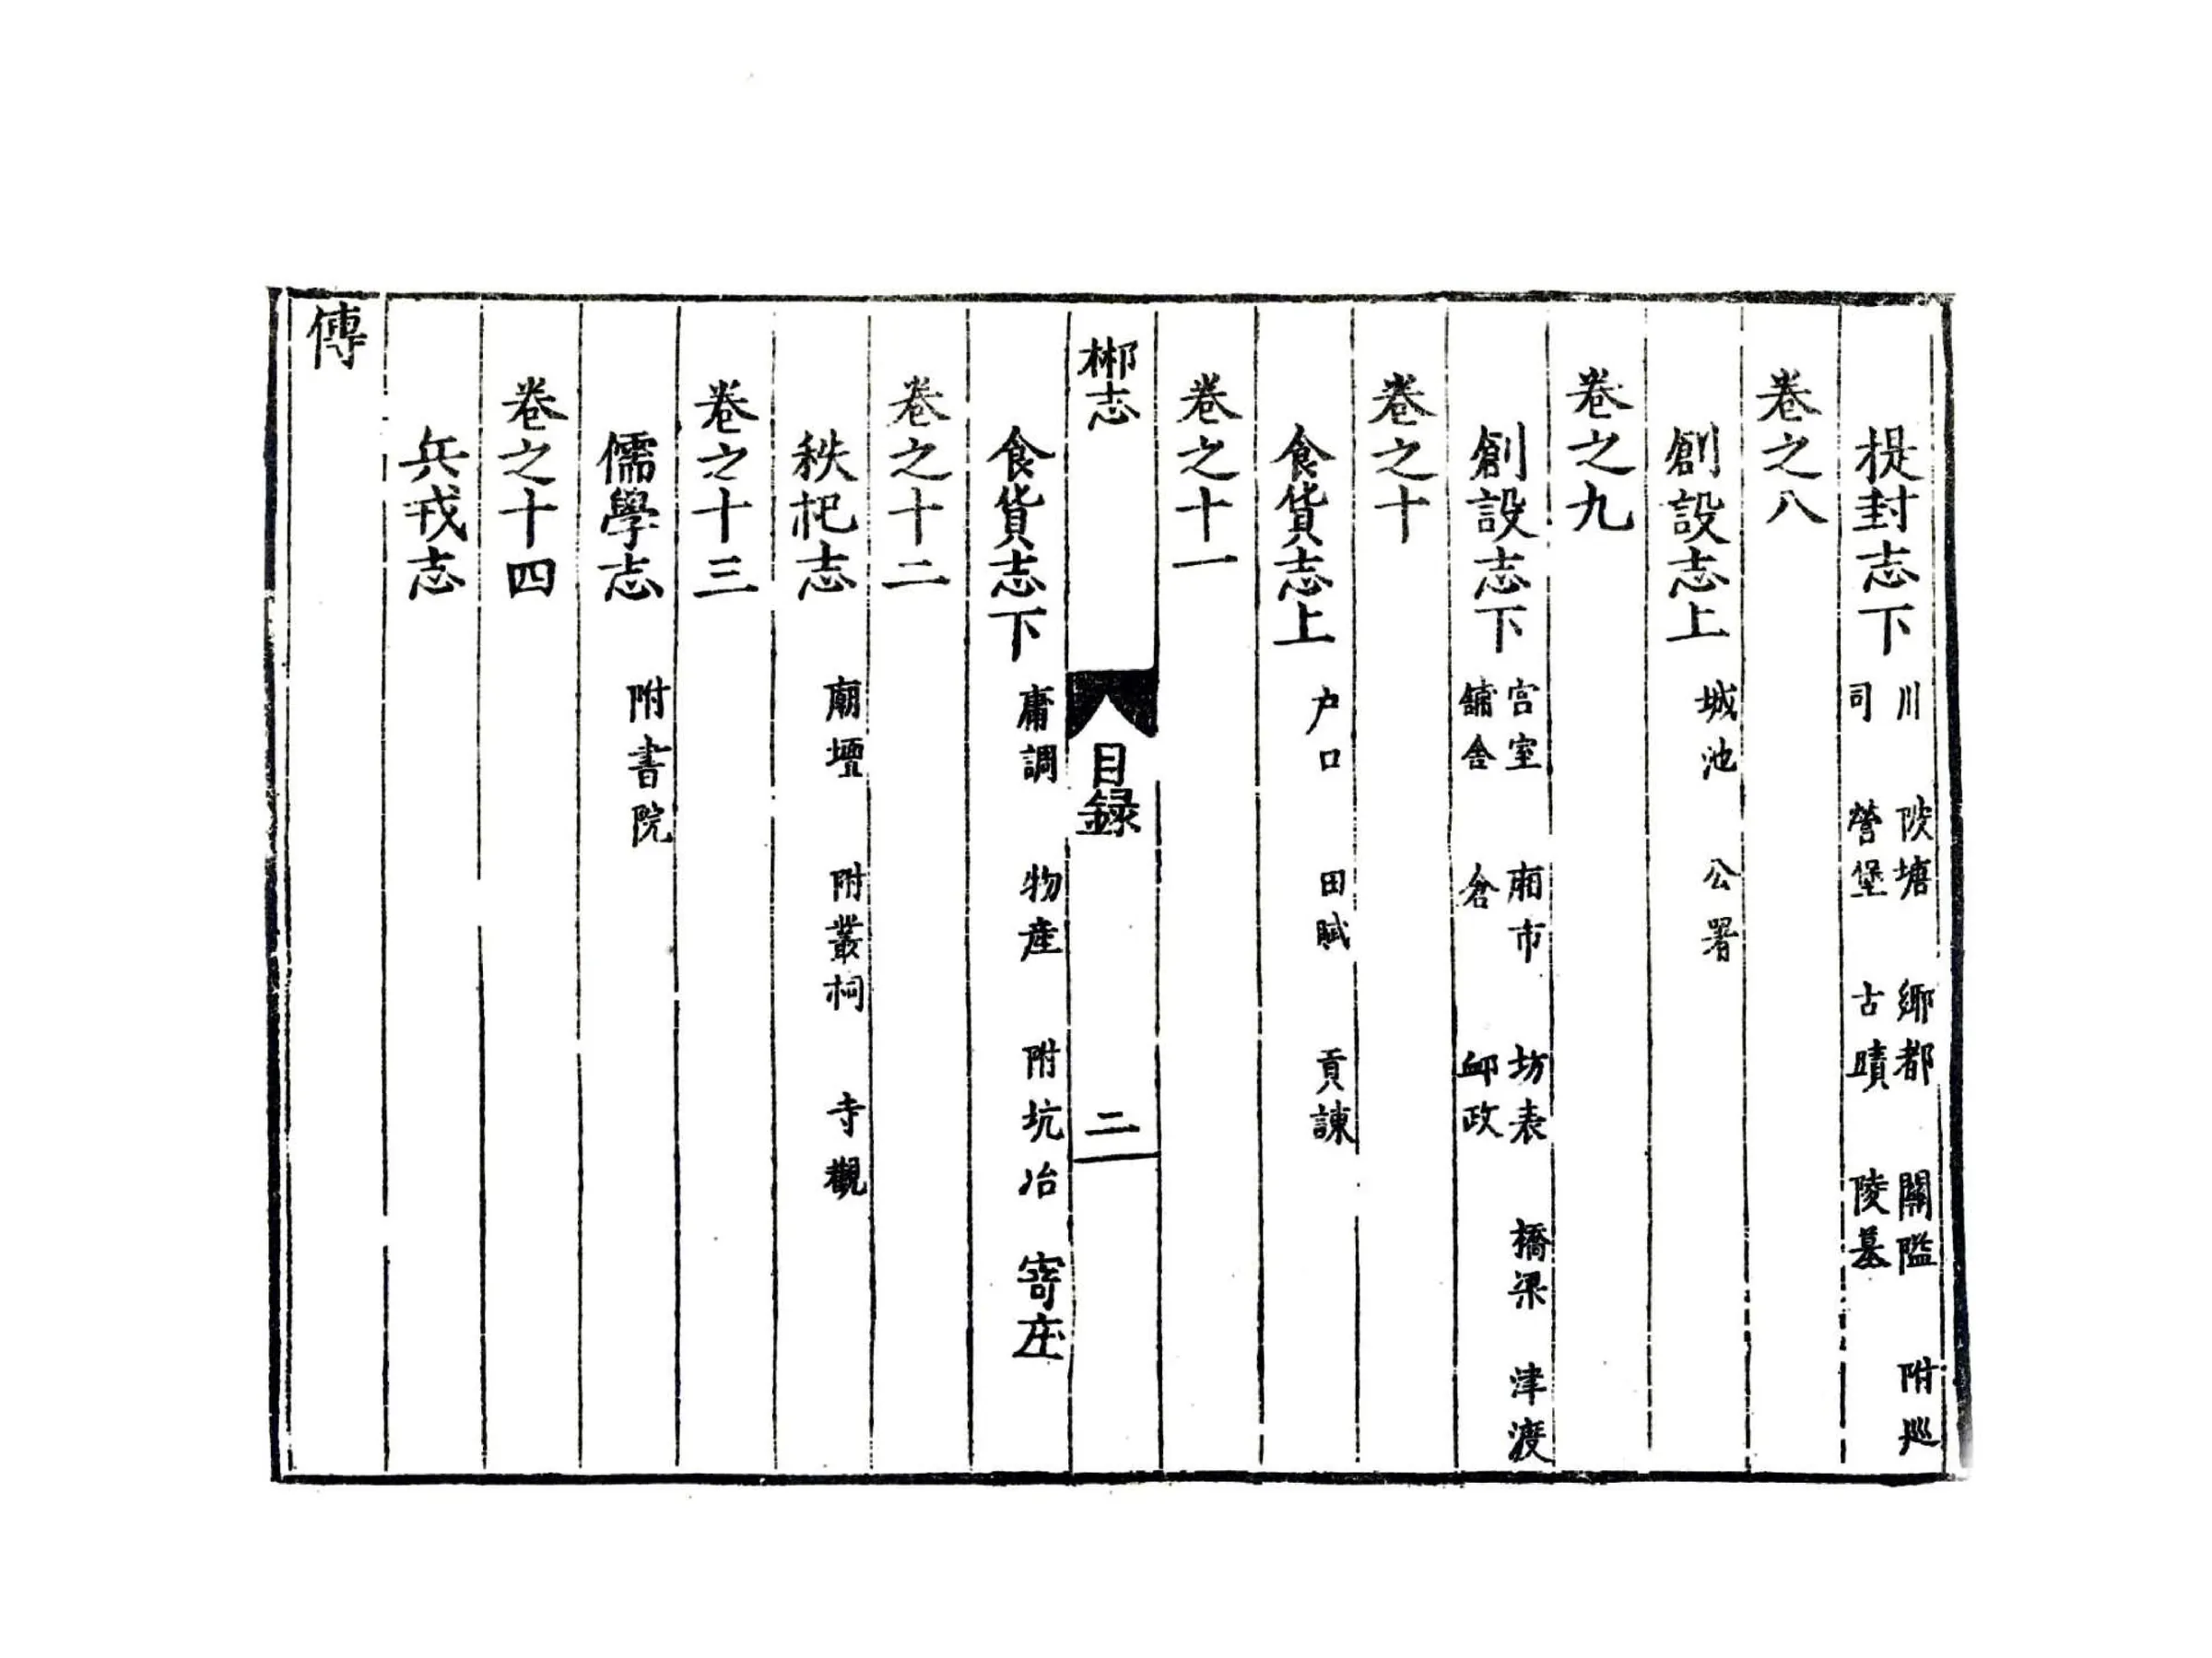 提封志下 川 陂塘 鄉都 關隘 附巡
司 營堡 古蹟 陵墓
卷之八
創設志上 城池 公署
卷之九
創設志下 宫室 廂市 坊表 橋梁 津渡
鋪舍 倉 卹政
卷之十
食貨志上 户口 田賦 貢諫
卷之十一
郴志 目録 二
食貨志下 庸調 物産 附坑冶 寄庄
卷之十二
秩祀志 廟壇 附叢祠 寺觀
卷之十三
儒學志 附書院
卷之十四
兵戎志
傳